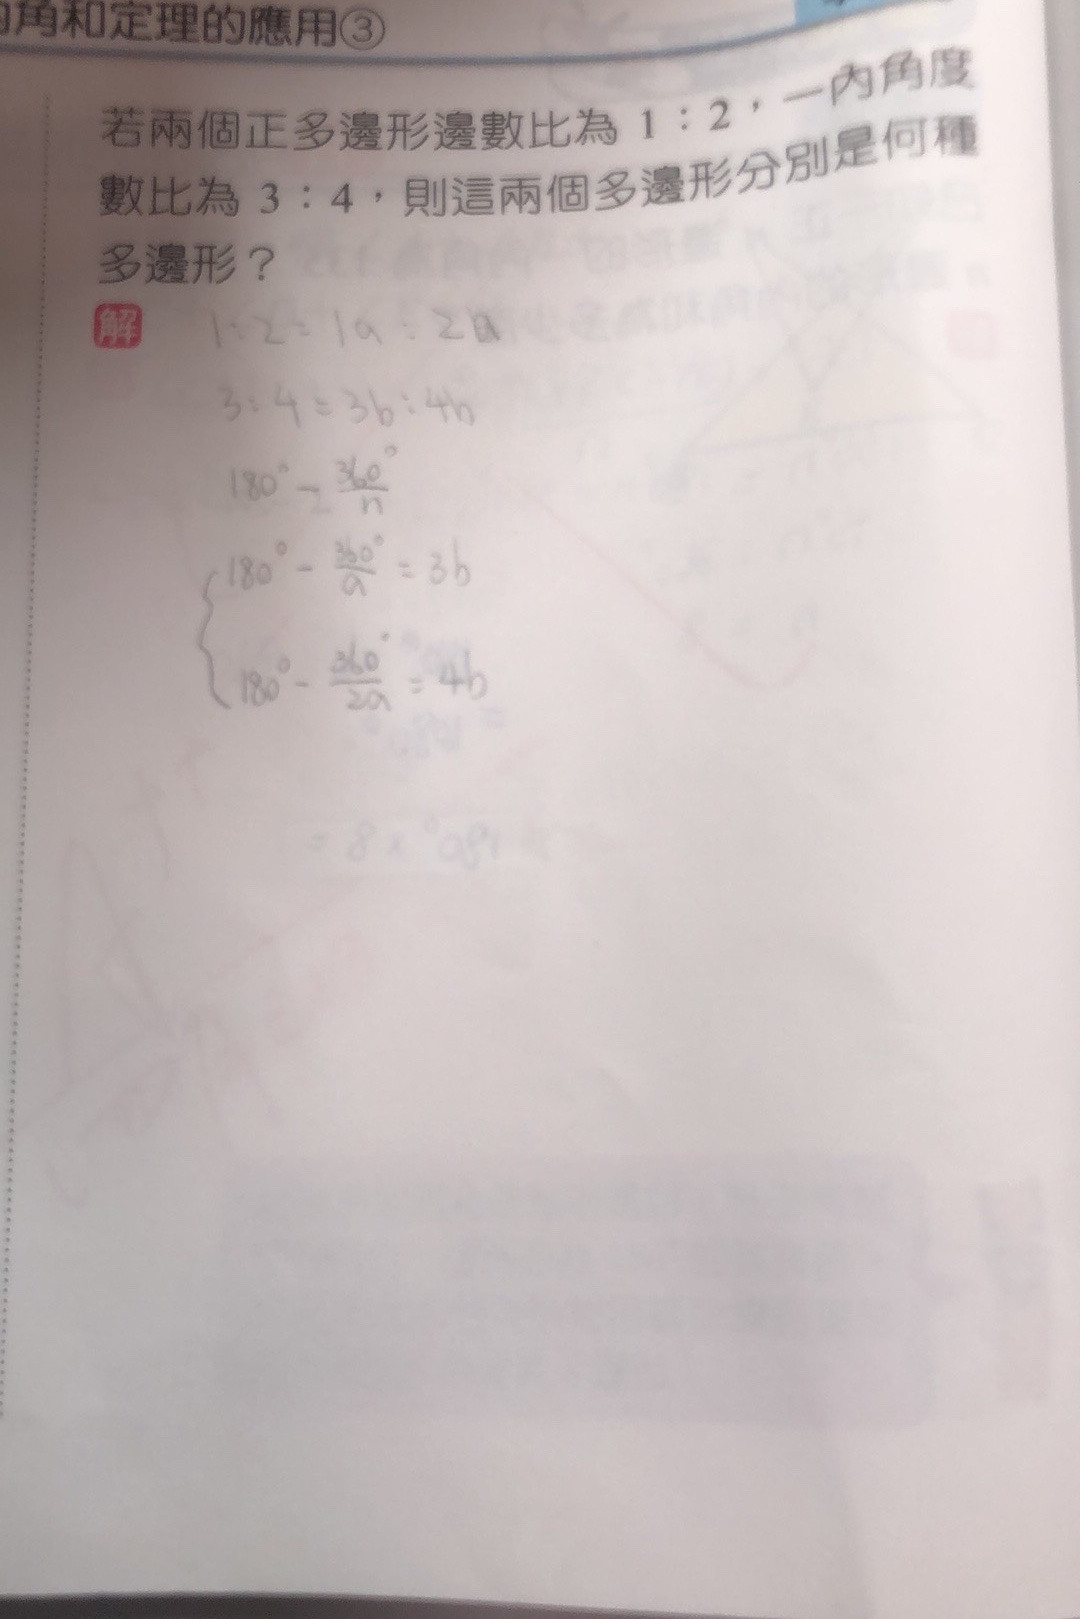 角和定理的應用③
若兩個正多邊形邊數比為 1：2，一內角度
數比為 3：4，則這兩個多邊形分別是何種
多邊形？
解 1:2=1a:2a
3:4=3b:4b
180°-360°/n
180°-360°/a=3b
180°-360°/2a=4b